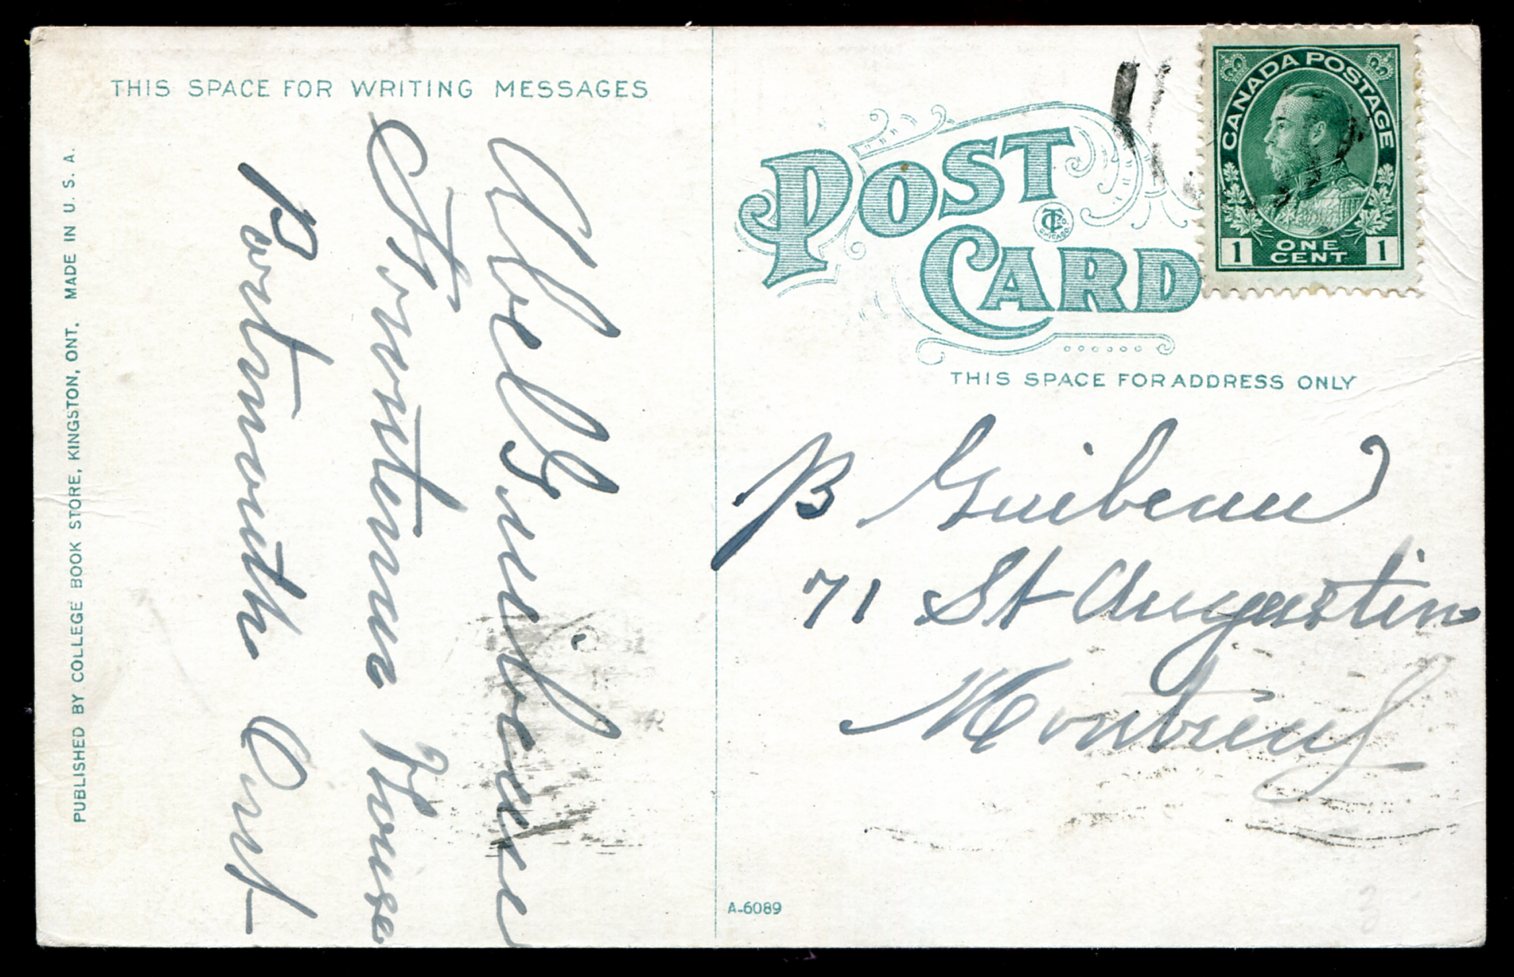 THIS SPACE FOR WRITING MESSAGES
Abel Guibeau
Frontenac House
Portmouth Ont
PUBLISHED BY COLLEGE BOOK STORE, KINGSTON, ONT. MADE IN U. S. A.
POST CARD
CTCO.
CHICAGO
CANADA POSTAGE
1 ONE CENT 1
THIS SPACE FOR ADDRESS ONLY
P Guibeau
71 St Augustin
Montreal
A-6089